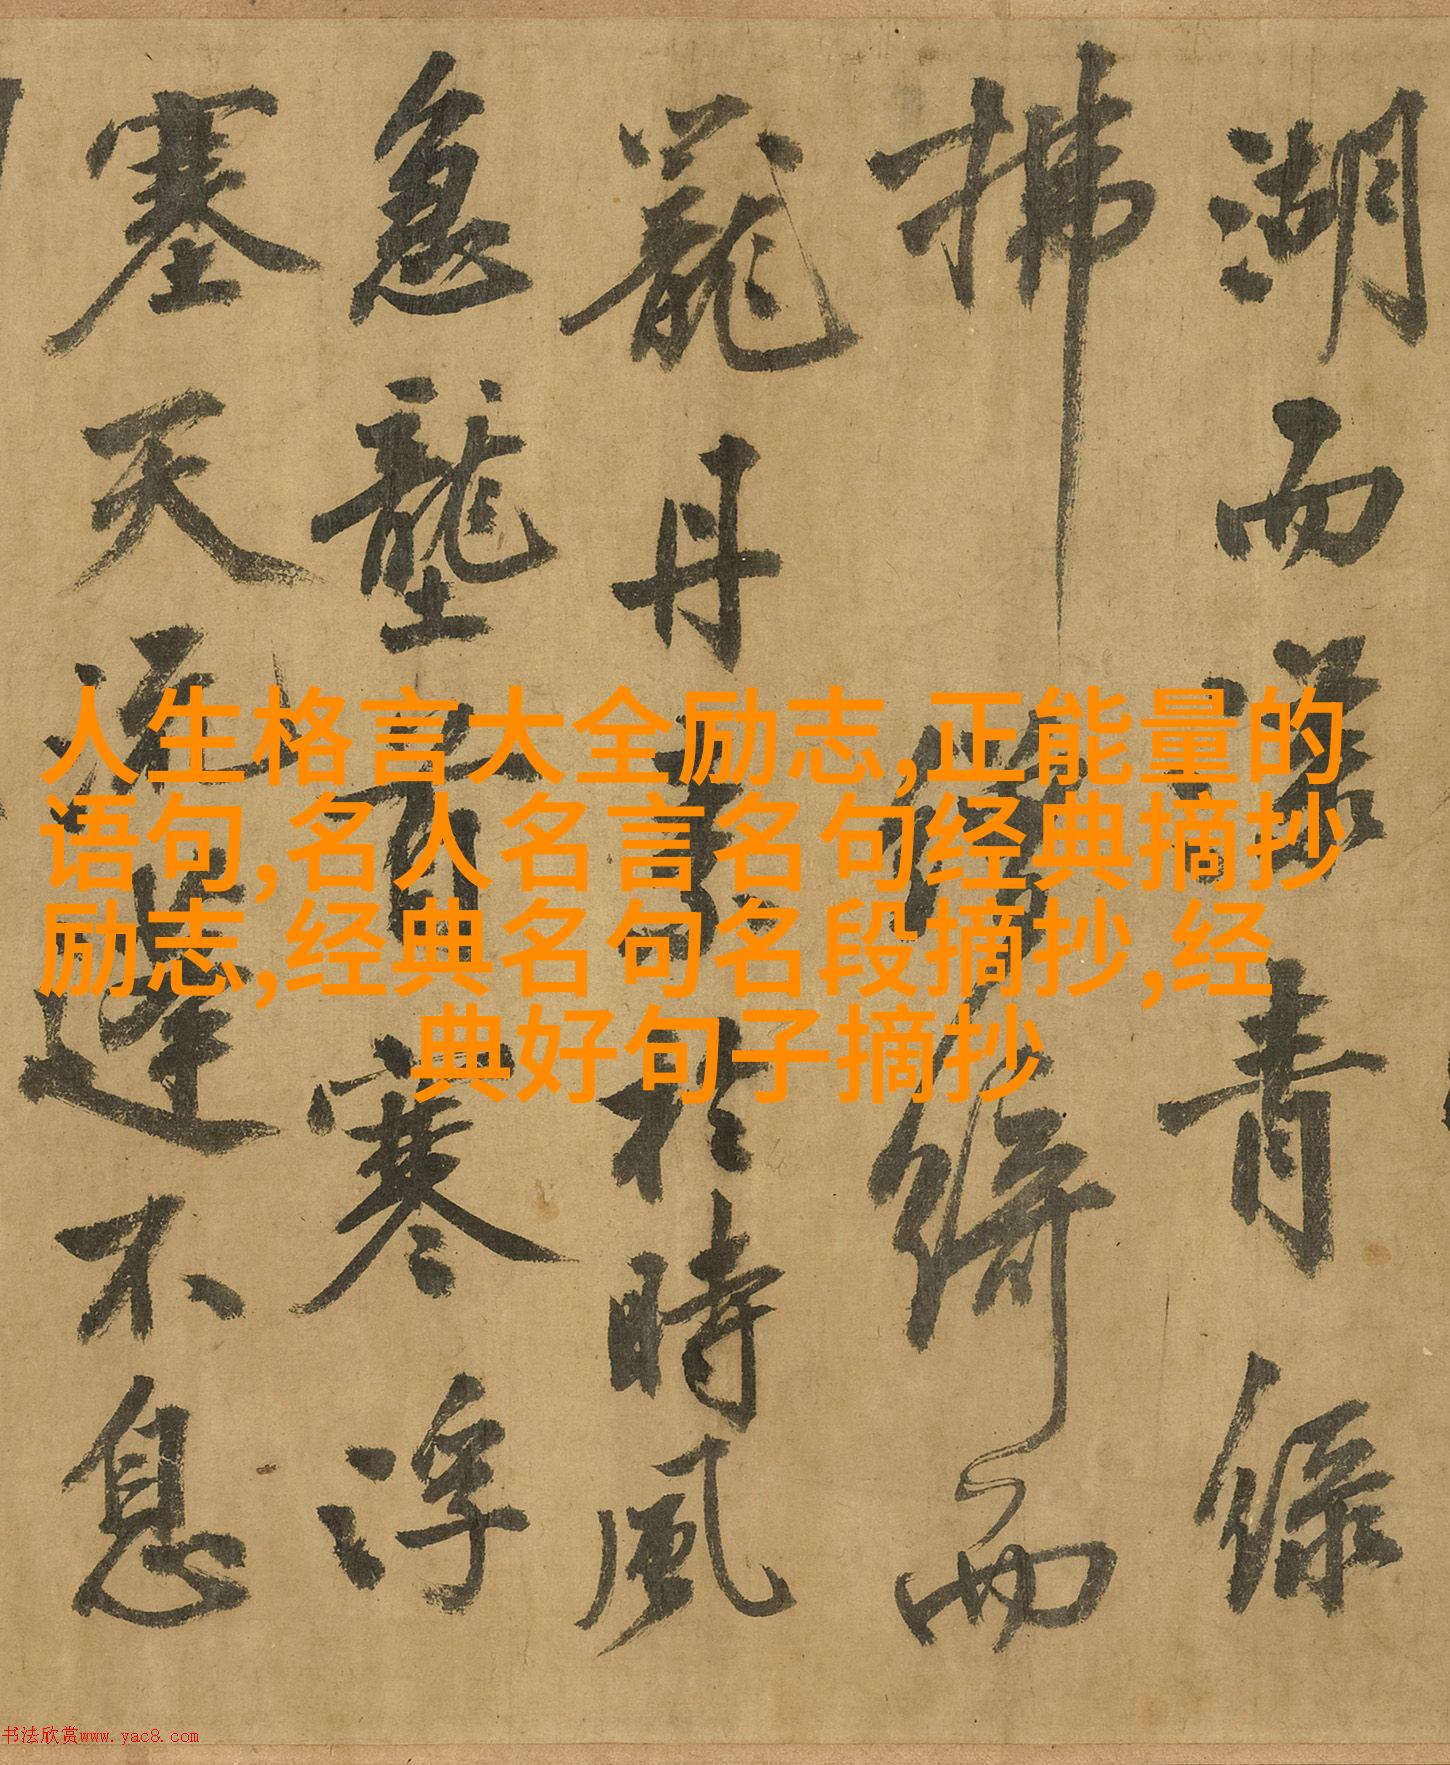 人生格言大全励志,正能量的
语句,名人名言名句经典摘抄
励志,经典名句名段摘抄,经
典好句子摘抄
湖而漾青綠
拂繡綺而
籠丹素於時風
急壟首寒浮
塞天流蓬不息
书法欣赏www.yac8.com